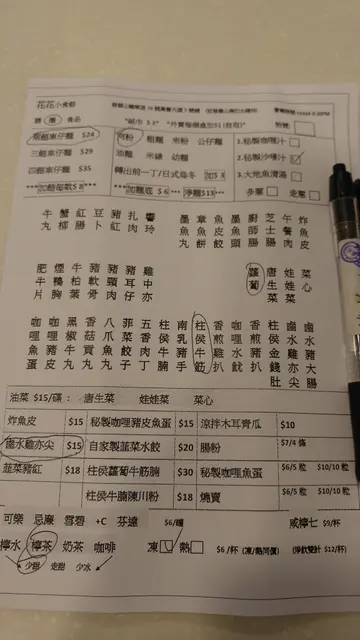 花花小食館
兩餸車仔麵 $24
三餸車仔麵 $29
四餸車仔麵 $35
**加餸每款$ 8***
"紙巾 $ 2"
河粉 粗麵 米粉 公仔麵
油麵 米線 幼麵
轉出前一丁/日式烏冬 加$ 3
***加麵底 $ 6 *** 淨麵$13***
1.秘製咖喱汁
2.秘製沙嗲汁
3.大地魚清湯
多蔥 走蔥
牛丸 蟹柳 紅腸 豆卜 豬紅 扎肉 響玲
墨魚丸 章魚丸 魚餅 墨魚餃 廚師腸 芝士腸 午餐肉 炸魚皮
肥牛片 煙鴨胸 牛柏葉 豬軟骨 豬頸肉 豬耳仔 雞中亦
蘿蔔 唐生菜 娃娃菜 菜心
咖哩魚蛋 咖哩豬皮 黑椒牛丸 香菇貢丸 八爪魚丸 菲菜餃子 五香肉丁 柱侯牛腩 南乳豬手 柱侯牛筋 香煎雞扒 咖哩水魷 香煎豬扒 柱侯金錢肚 鹵水雞亦尖 鹵水大腸
油菜 $15/碟: 唐生菜 娃娃菜 菜心
炸魚皮 $15 秘製咖喱豬皮魚蛋 $15 涼拌木耳青瓜 $10
鹵水雞亦尖 $15 自家製韮菜水餃 $20 腸粉 $7/4 條
韮菜豬紅 $18 柱侯蘿蔔牛筋腩 $30 秘製咖喱魚蛋 $6/5 粒 $10/10 粒
柱侯牛腩陳川粉 $18 燒賣 $6/5 粒 $10/10 粒
可樂 忌廉 雪碧 +C 芬達 $6/罐 咸檸七 $9/杯
檸水 檸茶 奶茶 咖啡 凍 熱 $6 /杯 (凍/熱同價) (淨飲雙計 $12/杯)
少甜 走甜 少冰